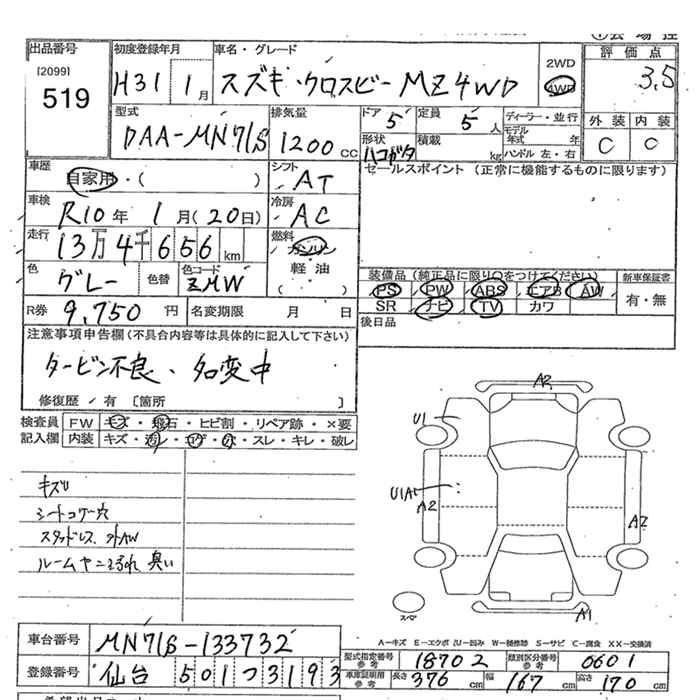 出品番号 初度登録年月 車名・グレード 2WD 評価点
[2099] 519 H31 1月 スズキ・クロスビー MZ 4WD 4WD 3.5
型式 排気量 ドア 5 定員 5人 ディーラー・並行 外装 内装
DAA-MN71S 1200 CC 形状 ハコガタ 積載 kg モデル年式 年 C C
ハンドル 左・右
車歴 自家用・( ) シフト AT セールスポイント (正常に機能するものに限ります)
車検 R10年 1月(20日) 冷房 AC
走行 13万4千656km 燃料 ガソリン
軽油
( )
色 グレー 色替 色コード ZMW 装備品(純正品に限り○をつけてください) 新車保証書
PS PW ABS エアB AW 有・無
R券 9,750円 名変期限 月 日 SR ナビ TV カワ
後日品
注意事項申告欄(不具合内容等は具体的に記入して下さい)
タービン不良、名変中
修復歴/有 [箇所 ]
検査員 FW キズ・飛石・ヒビ割・リペア跡・×要
記入欄 内装 キズ・・コゲ・穴・スレ・キレ・破レ
A2
U1
キズU
U1A1
シートコゲ穴 A2
スタッドレス 外AW A2
ルームヤニよごれ 臭い
スペア A1
A−キズ E−エクボ U−凹み W−補修跡 S−サビ C−腐食 XX−交換済
車台番号 MN71S-133732
型式指定番号 参考 18702 類別区分番号 参考 0601
登録番号 仙台 501 つ 3193 車庫証明用 参考 長さ 376cm 幅 167cm 高さ 170cm